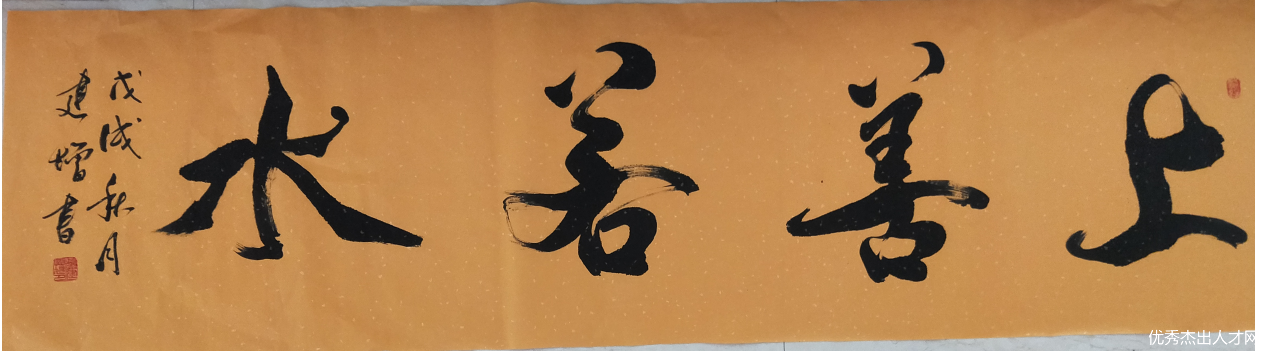 上善若水
戊戌秋月
建增书
优秀杰出人才网